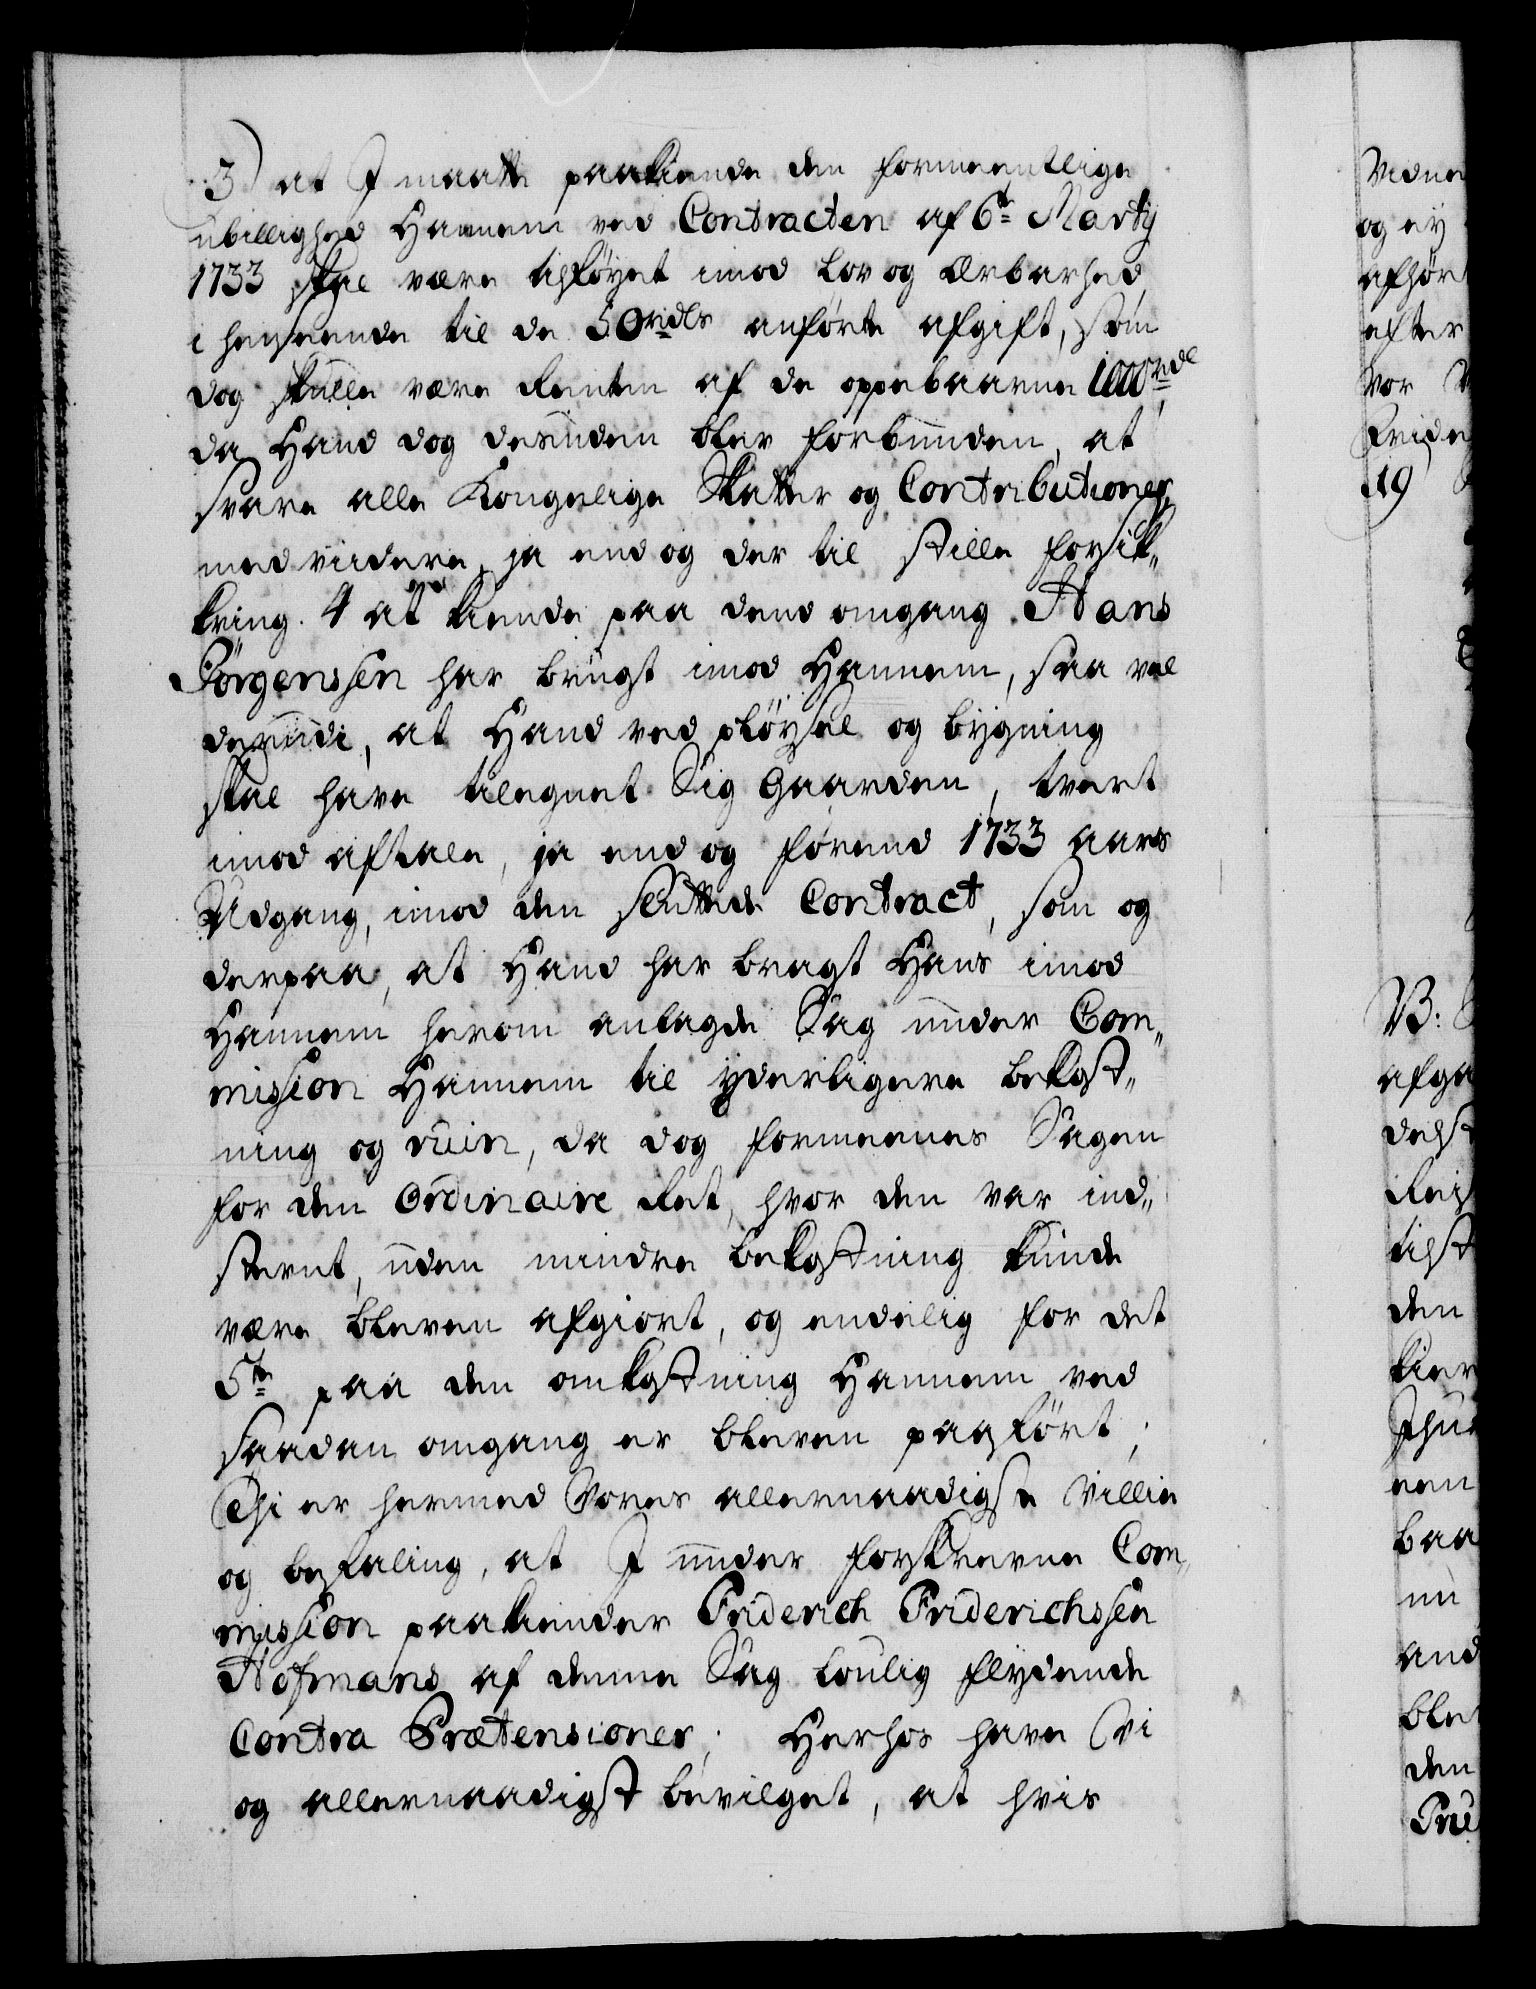 3) at I maatte paakiende den formeentlige
ubillighed Hannem ved Contracten af 6te Martij
1733 skal være tilføyet imod Lov og Ærbarhed
i henseende til de 50 rdlrs anførte afgift, som
dog skulle være Renten af de oppebaarne 1000 rdl
da Hand dog desuden blev forbunden, at
svare alle Kongelige Skatter og Contributioner,
med viidere, ja end og der til stille forsik„
kring. 4 at kiende paa dend omgang Hans
Jörgenssen har brugt imod Hannem, saa vel
derudi, at Hand ved pløysel og bygning
skal have tilegnet Sig Gaarden, tvert
imod aftale, ja end og førend 1733 aars
Udgang, imod den sluttede Contract, som og
derpaa, at Hand har bragt Hans imod
Hannem herom anlagde Sag under Com„
mission Hannem til yderligere bekost„
ning og ruin, da dog formeenes Sagen
for den Ordinaire Ret, hvor den var ind„
stevnt, uden mindre bekostning kunde
være bleven afgiort, og endelig for det
5te paa den omkostning Hannem ved
saadan omgang er bleven paaført;
Thi er hermed Vores allernaadigste Villie
og befaling, at I under forskrevne Com„
mission paakiender Friderich Friderichssen
Hofmans af denne Sag loulig flydende
Contra Prætensioner; Herhos have Vi
og allernaadigst bevilget, at hvis
Vidne
og ey
afhør
efter
vor
Fride
19
VB:
afga
dels
Reis
tilst
den
kier
Jhu
een
baa
nu
and
ble
den
Frid